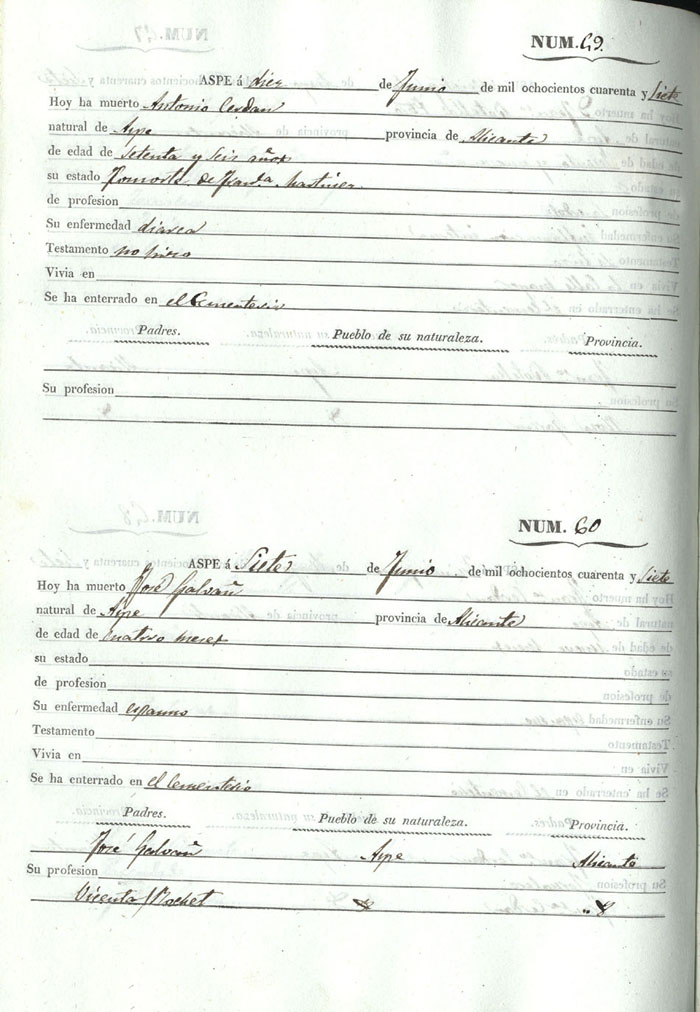 NUM. 69.
ASPE á diez de Junio de mil ochocientos cuarenta y Siete
Hoy ha muerto Antonio Cerdan
natural de Aspe provincia de Alicante
de edad de Setenta y Seis años
su estado Consorte de Fran.ca Martinez
de profesion
Su enfermedad diarea
Testamento no hizo
Vivia en
Se ha enterrado en el Cementerio
Padres. Pueblo de su naturaleza. Provincia.
Su profesion
NUM. 60
ASPE á Siete de Junio de mil ochocientos cuarenta y Siete
Hoy ha muerto José Galvañ
natural de Aspe provincia de Alicante
de edad de cuatro meses
su estado
de profesion
Su enfermedad espasmo
Testamento
Vivia en
Se ha enterrado en el Cementerio
Padres. Pueblo de su naturaleza. Provincia.
José Galvañ Aspe Alicante
Su profesion
Vicenta